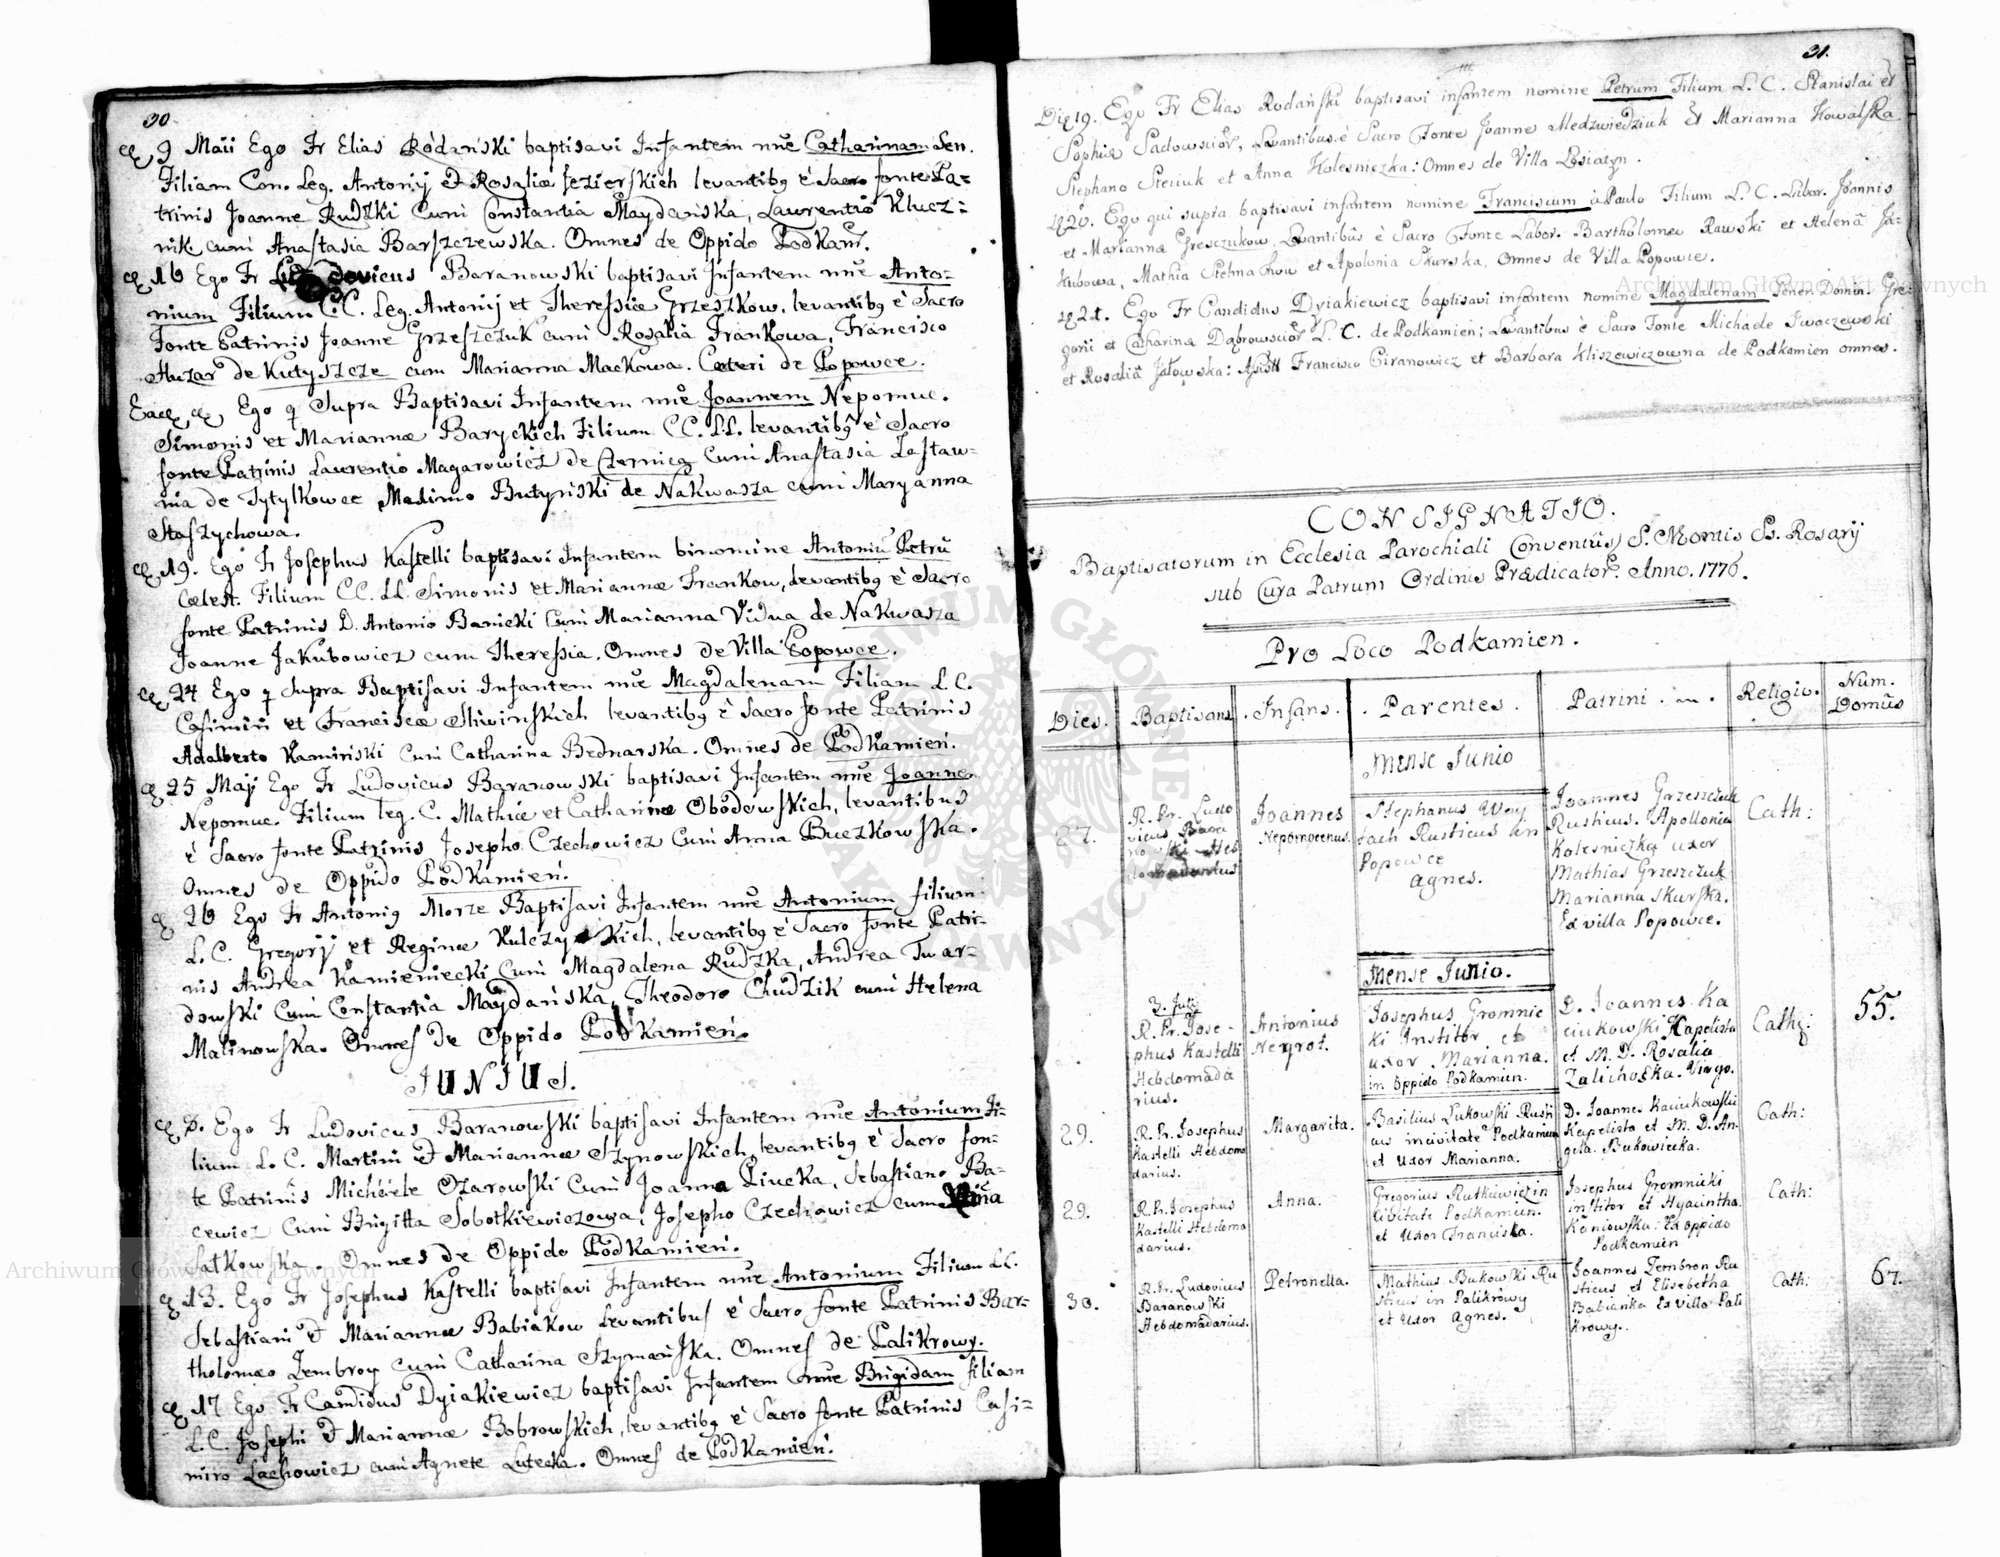 30.
9 Maii Ego Fr Elias Rodański baptisavi Infantem nne Catharinam Gen.
Filiam Con. Leg. Antonij et Rosaliæ Jezierskich levantibq è Sacro fonte Pa=
trinis Joanne Rudzki cum Constantia Maydańska, Laurentio Klucz=
nik cum Anastasia Barszczewska. Omnes de Oppido Podkam.
16 Ego Fr Ludovicus Baranowski baptisavi Infantem nne Anto=
nium Filium C.C. Leg. Antonij et Theressiæ Grzeszkow, levantibq è Sacro
Fonte Patrinis Joanne Grzeszczuk cum Rosalia Frankowa, Francisco
Huzar de Kutyszcze cum Marianna Mackowa. Cæteri de Popowce.
Ego q Supra Baptisavi Infantem nne Joannem Nepomuc.
Simonis et Mariannæ Baryckich Filium CC. LL. levantibq è Sacro
fonte Patrinis Laurentio Magarowicz de Czernica cum Anastasia Zastaw=
nia de Tytylkowce Maximo Butyński de Nakwasza cum Maryanna
Staszychowa.
19. Ego Fr Josephus Kastelli baptisavi Infantem binomine Antoniu Petru
Cælest. Filium CC. LL. Simonis et Mariannæ Frankow, levantibq è Sacro
fonte Patrinis D. Antonio Banicki Cum Marianna Vidua de Nakwasza
Joanne Jakubowicz cum Theressia. Omnes de Villa Popowce.
24 Ego q Supra Baptisavi Infantem nne Magdalenam Filiam L.C.
Casimiri et Franciscæ Sliwinskich levantibq è Sacro fonte Patrinis
Adalberto Kamiński Cum Catharina Bednarska. Omnes de Podkamień.
25 Maij Ego Fr Ludovicus Baranowski baptisavi Infantem nne Joannem
Nepomuc. Filium leg. C. Mathiæ et Catharinæ Obodowskich, levantibus
è Sacro fonte Patrinis Josepho Czechowicz Cum Anna Buczkowska.
Omnes de Oppido Podkamień.
26 Ego Fr Antoniq Morze Baptisavi Infantem nne Antonium filium
L.C. Gregorij et Reginæ Kulczyckich, levantibq è Sacro fonte Patri=
nis Andrea Kamieniecki Cum Magdalena Rudzka, Andrea Twar=
dowski Cum Constantia Maydańska, Theodoro Chudzik cum Helena
Malinowska. Omnes de Oppido Podkamień.
JUNIUS.
Ego Fr Ludovicus Baranowski baptisavi Infantem nne Antonium Fi=
lium L. C. Martini et Mariannæ Szynowskich, levantibq è Sacro fon=
te Patrinis Michaele Ozarowski Cum Joanna Piucka, Sebastiano Ba=
cewicz Cum Brigitta Sobotkiewiczowa, Josepho Czechowicz cum
Satkowska. Omnes de Oppido Podkamień.
13. Ego Fr Josephus Kastelli baptisavi Infantem nne Antonium Filium LC.
Sebastiani et Mariannæ Babiakow Levantibus è Sacro fonte Patrinis Bar=
tholomæo Zembroy cum Catharina Szymańska. Omnes de Palikrowy.
17 Ego Fr Candidus Dyiakiewicz baptisavi Infantem nne Brigidam filiam
L.C. Josephi et Mariannæ Bobrowskich, levantibq è Sacro fonte Patrinis Casi=
miro Lachowicz cum Agnete Lutecka. Omnes de Podkamień.
31.
Die 19. Ego Fr Elias Rodański baptisavi infantem nomine Petrum Filium L. C. Stanislai et
Sophiæ Sadowsciör, Levantibus è Sacro Fonte Joanne Medzwiedziuk et Marianna Kowalska
Stephano Steciuk et Anna Kolesniczka: Omnes de Villa Losiatyn.
20. Ego qui supra baptisavi infantem nomine Franciscum à Paulo Filium L. C. Labor. Joannis
et Mariannæ Gresczukow, Levantibus è Sacro Fonte Labor. Bartholomæo Rawski et Helena Ja=
kubowa, Mathia Stehnachow et Apolonia Skurska. Omnes de Villa Popowce.
21. Ego Fr Candidus Dyiakiewicz baptisavi infantem nomine Magdalenam Gener. Domin. Gre=
gorii et Catharinæ Dąbrowsciör L. C. de Podkamien; Levantibus è Sacro Fonte Michaele Iwaczewski
et Rosalia Jałowska: Assistt Francisco Ciranowicz et Barbara Kliszewiczowna de Podkamien omnes.
CONSIGNATIO.
Baptisatorum in Ecclesia Parochiali Conventûs S. Montis Ss. Rosarij
sub Cura Patrum Ordinis Prædicator. Anno. 1776.
Pro Loco Podkamien.
Dies. Baptisans. Infans. Parentes. Patrini. Religio. Num. Domûs
Mense Junio
27.
R. Pr. Ludo
vicus Bara
nowski Heb
domadarius
Joannes
Nepomocenus.
Stephanus Woy
tach Rusticus in
Popowce
Agnes.
Joannes Grzeszczuk
Rusticus. Apollonia
Kolesniczka uxor
Mathias Grzeszczuk
Marianna Skurska.
Ex villa Popowce.
Cath:
Mense Junio.
3. Julij
R. Pr. Jose-
phus Kastelli
Hebdomada
rius.
Antonius
Negrot.
Josephus Gromnic
ki Institor et
uxor Marianna.
in oppido Podkamien.
D. Joannes Ka
ciukowski Kapelista
et M. D. Rosalia
Zalichoska. Virgo.
Cath:
55.
29.
R. Pr. Josephus
Kastelli Hebdoma
darius.
Margarita.
Basilius Lukowski Rusti
cus in civitate Podkamien
et Uxor Marianna.
D. Joannes Kaciukowski
Kapelista et M. D. An
gela Bukowiecka.
Cath:
29.
R. Pr. Josephus
Kastelli Hebdoma
darius.
Anna.
Gregorius Rutkiewicz in
civitate Podkamien.
et Uxor Francisca.
Josephus Gromnicki
institor et Hyacintha
Kaniowska: Ex oppido
Podkamien
Cath:
30.
R. Pr. Ludovicus
Baranowski
Hebdomadarius.
Petronella.
Mathius Bukowski Ru
sticus in Palikrowy
et Uxor Agnes.
Joannes Zembron Ru
sticus et Elisebetha
Babianka Ex Villa Pali
krowy.
Cath:
67.
Archiwum Główne Akt Dawnych
Archiwum Główne Akt Dawnych
ARCHIWUM GŁÓWNE AKT DAWNYCH